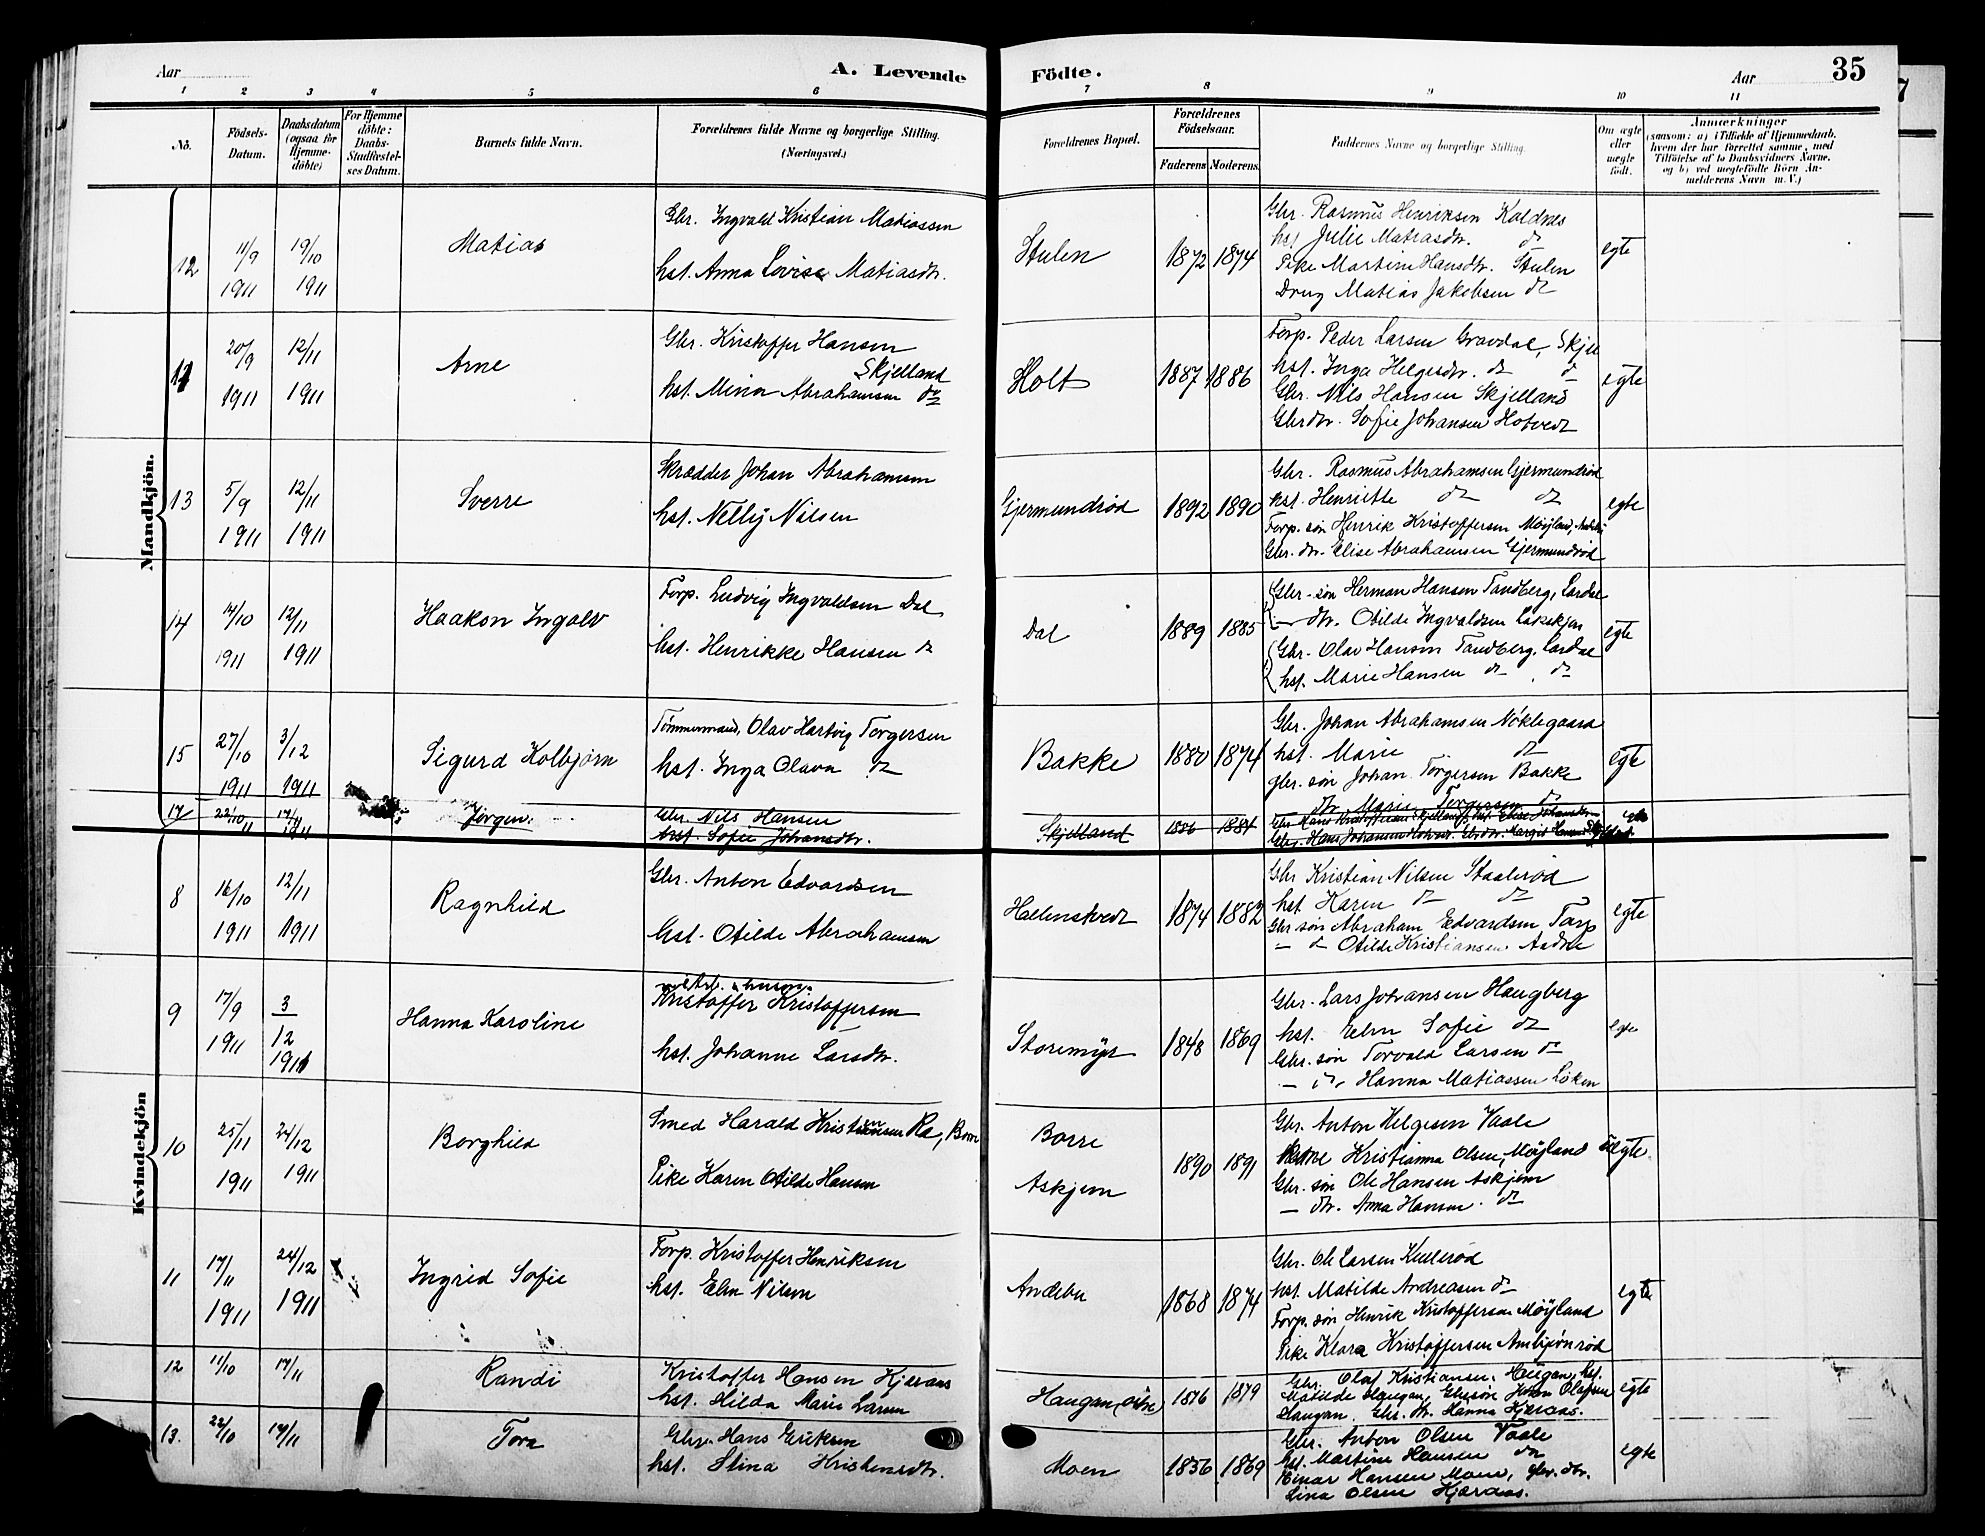 Aar
A. Levende
Födte.
Aar
35
1 2 3 4 5 6 7 8 9 10 11
No.
Födsels-
Datum.
Daabsdatum
(ogsaa for
Hjemme-
döbte)
For Hjemme
döbte:
Daabs-
Stadfæstel-
ses Datum.
Barnets fulde Navn.
Forældrenes fulde Navne og borgerlige Stilling.
(Næringsvei.)
Forældrenes Bopæl.
Forældrenes
Födselsaar.
Faderens Moderens
Faddernes Navne og borgerlige Stilling.
Om ægte
eller
uægte
födt.
Anmærkninger
(saasom: a) i Tilfælde af Hjemmedaab,
hvem der har forrettet samme, med
Tilföielse af to Daabsvidners Navne,
og b) ved uægtefödte Börn An-
melderens Navn m. V.)
Mandkjön.
12
11/9
1911
19/10
1911
Matias
Gbr. Ingvald Kristian Matiassen
hst. Anna Lovise Matiasdtr.
Stulen
1872 1874
Gbr. Rasmus Henriksen Kaldnes
hst Julie Matiasdtr. do
Pike Martine Hansdtr. Stulen
Dreng Matias Jakobsen do
egte
11
20/9
1911
12/11
1911
Arne
Gbr. Kristoffer Hansen
Skjelland
hst. Mina Abrahamsen do
Holt
1887 1886
Forp. Peder Larsen Gravdal, Skjell
hst. Inga Helgesdtr. do do
Gbr. Nils Hansen Skjelland
Gbrdtr. Sofie Johansen Hotvedt
egte
13
5/9
1911
12/11
1911
Sverre
Skrædder Johan Abrahamsen
hst. Nelly Nilsen
Gjermundrød
1892 1890
Gbr. Rasmus Abrahamsen Gjermundrød
hst. Henriette do do
Forp. søn Henrik Kristoffersen Møyland,
Gbr. dtr. Elise Abrahamsen Gjermundrød
egte
14
14/10
1911
12/11
1911
Haakon Ingolv
Forp. Ludvig Ingvaldsen Dal
hst. Henrikke Hansen do
Dal
1889 1885
Gbr. søn Herman Hansen Tandberg, Lardal
— dtr. Otilde Ingvaldsen Lakskjøn
Gbr. Olav Hansen Tandberg, Lardal
hst. Marie Hansen do do
egte
15
27/10
1911
3/12
1911
Sigurd Kolbjørn
Tømmermand, Olav Hartvig Torgersen
hst. Inga Olava do
Bakke
1880 1874
Gbr. Johan Abrahamsen Nøklegaard
hst. Marie do
gbr. søn Johan Torgersen Bakke
dtr. Marie Torgersen do
egte
17
22/10 11
17/11
1911
Jørgen
Gbr. Nils Hansen
hst. Sofie Johansdtr.
Skjelland
1886 1884
Gbr Hans Kristiansen Skjelland, hst. Elise Johansdtr
Gbr. Hans Johansen Hotvedt. Gbrdtr. Margit Hansen Skjelland.
egte
Kvindekjön
8
16/10
1911
12/11
1911
Ragnhild
Gbr. Anton Edvardsen
Hst. Otilde Abrahamsen
Hallenstvedt
1874 1882
Gbr Kristian Nilsen Staalerød
hst. Karen do do
Gbr søn Abraham Edvardsen Torp
— do Otilde Kristiansen
egte
9
17/9
1911
3
12
1911
Hanna Karoline
Kristoffer Kristoffersen
hst. Johanne Larsdtr.
Storemyr
1848 1869
Gbr. Lars Johansen Haugberg
hst. Elen Sofie do
Gbr. søn Torvald Larsen do
— Hanna Matiassen Løken
egte
10
25/11
1911
24/12
1911
Borghild
Smed Harald Kristiansen Ra, Borre
Pike Karen Otilde Hansen
Borre
Askjem
1890 1891
Gbr. Anton Helgesen Vaale
Kristianna Olsen, Møyland
Gbr. søn Ole Hansen Askjem
— dtr. Anna Hansen do
uegte.
11
17/11
1911
24/12
1911
Ingrid Sofie
Forp. Kristoffer Henriksen
hst. Elen Nilsen
Andebu
1868 1874
Gbr. Ole Larsen Kullerød
hst. Matilde Andreasen do
Forp. søn Henrik Kristoffersen Møyland
Pike Klara Kristoffersen Ambjørnrød
egte
12
11/10
17/11
Randi
Kristoffer Hansen Kjæraas
hst. Hilda Marie Larsen
Haugan (østre)
1876 1879
Gbr. Olaf Kristiansen, Haugan, hst.
Matilde Haugan, Gbrsøn Johan Olafsen
Haugan. Gbr. dtr. Hanna Kjæraas.
egte
13.
22/10
17/11
Tora
Gbr. Hans Eriksen
hst. Stina Kristensdtr.
Moen
1856 1869
Gbr. Anton Olsen Vaale
hst. Martine Hansen do
Einar Hansen Moen, gbr. dtr.
Lina Olsen Kjæraas.
egte